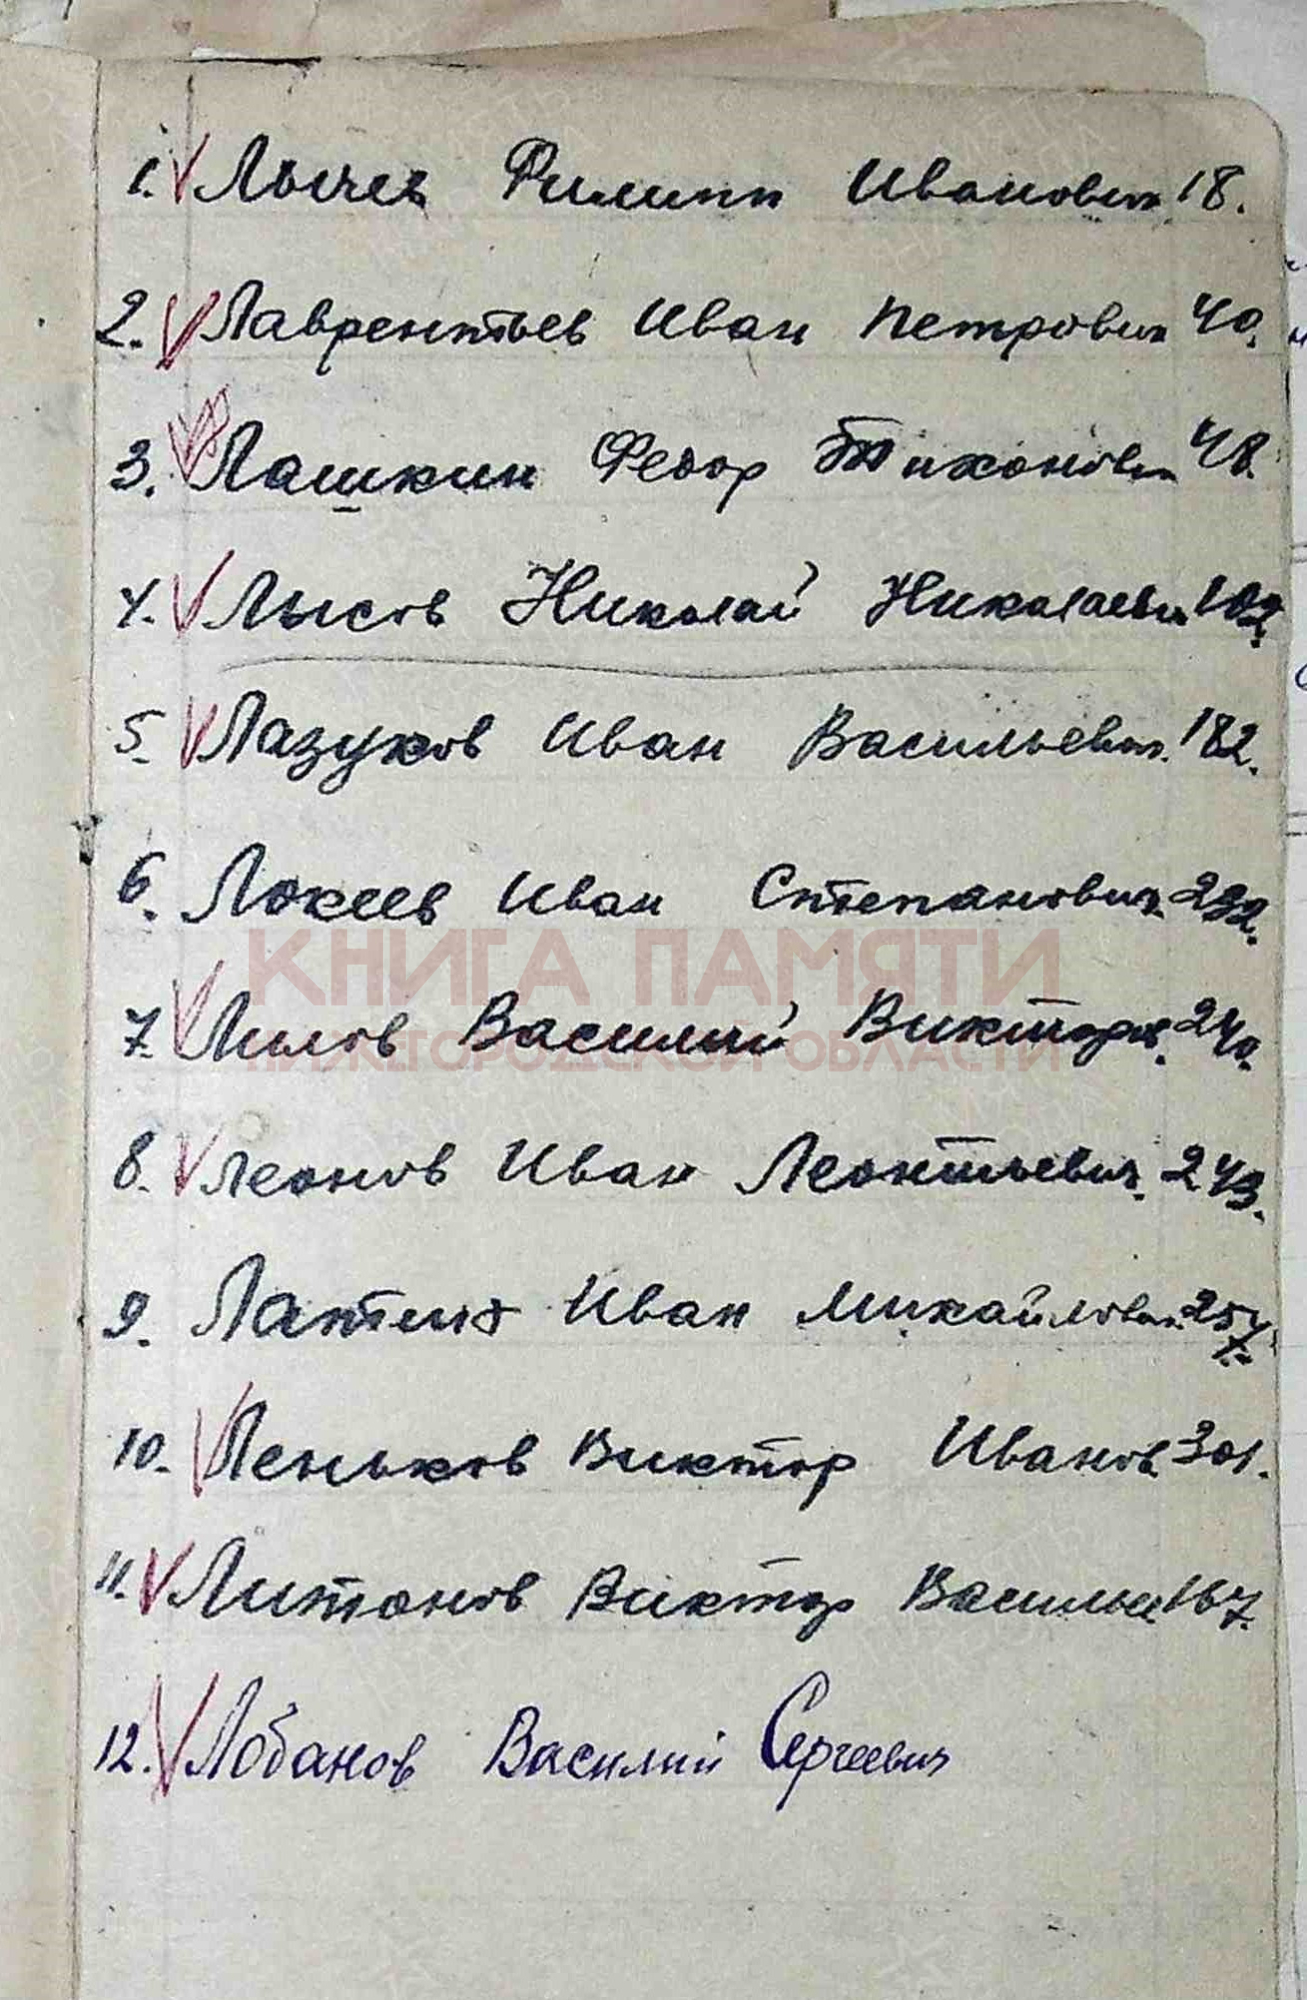 1. Лычев Филипп Иванович 18.
2. Лаврентьев Иван Петрович 40.
3. Лашкин Федор Тихонович 48.
4. Лысов Николай Николаевич 102.
5. Лазуков Иван Васильевич. 182.
6. Локеев Иван Степанович. 232.
КНИГА ПАМЯТИ
7. Лилов Василий Викторов. 240.
НИЖЕГОРОДСКОЙ ОБЛАСТИ
8. Леонов Иван Леонтьевич. 243.
9. Иван Михайлович 257.
10. Леньков Виктор Иванов. 301.
11. Литонов Виктор Василье 167.
12. Лобанов Василий Сергеевич